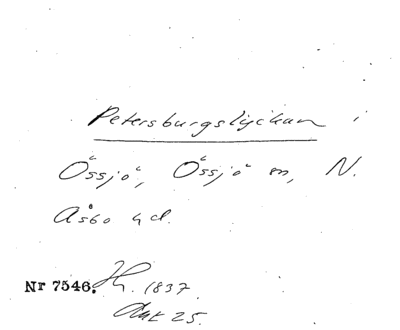 Petersburgslyckan i
Össjö, Össjö sn, N.
Åsbo hd.
Nr 7546. H. 1837.
Akt 25.